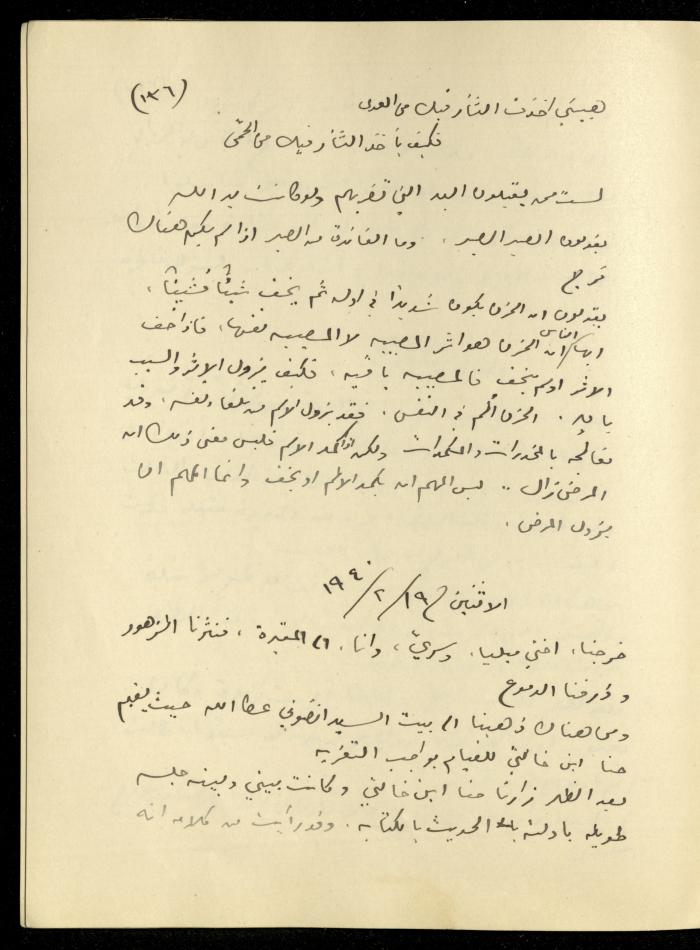 (١٣٦)
هبيني اخذت الثأر فيك من العدى
فكيف بأخذ الثأر فيك من الحمّى
لست ممن يقبلون اليد التي تضربهم ولو كانت يد الله
يقولون الصبر الصبر، وما الفائدة من الصبر اذا لم يكن هناك
فرج
يقولون ان الحزن يكون شديداً في اوله ثم يخف شيئاً فشيئاً،
ايها الناس ان الحزن هو اثر المصيبه لا المصيبه نفسها، فاذا خف
الاثر او لم يخف فالمصيبه باقيه، فكيف يزول الاثر والسبب
باقٍ. الحزن ألم في النفس، فقد يزول الالم من تلقاء نفسه، وقد
نعالجه بالمخدرات والمكمدات ولكن اذا خمد الالم فليس معنى ذلك ان
المرض زال .. ليس المهم ان يخمد الالم او يخف وانما المهم ان
يزول المرض.
الاثنين ١٩/٢/١٩٤٠
خرجنا، اختي ميليا، وسريّ، وانا، الى المقبرة، فنثرنا الزهور
وذرفنا الدموع
ومن هناك ذهبنا الى بيت السيد انضوني عطاالله حيث يقيم
حنا ابن خالتي للقيام بواجب التعزيه
بعد الظهر زارنا حنا ابن خالتي وكانت بيني وبينه جلسه
طويله بادلته الحديث بالكتابه. وقد رأيت من كلامه انه